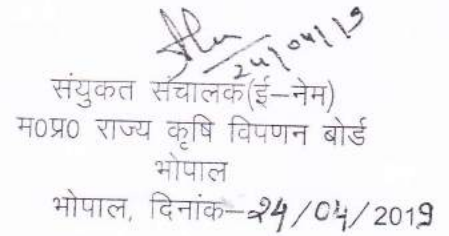 24/04/19
संयुकत संचालक(ई–नेम)
म0प्र0 राज्य कृषि विपणन बोर्ड
भोपाल
भोपाल, दिनांक–24/04/2019